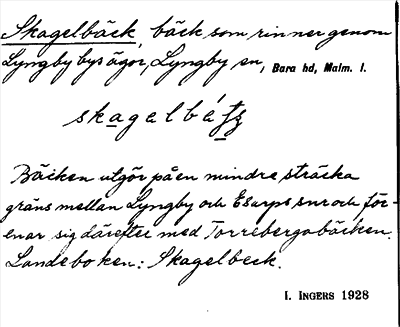 Skagelbäck, bäck som rinner genom
Lyngby bys ägor, Lyngby sn, Bara hd, Malm. l.
skagelbátʒ
Bäcken utgör på en mindre sträcka
gräns mellan Lyngby och Esarps snr och för-
enar sig därefter med Torrebergabäcken.
Landeboken: Skagelbeck.
I. INGERS 1928